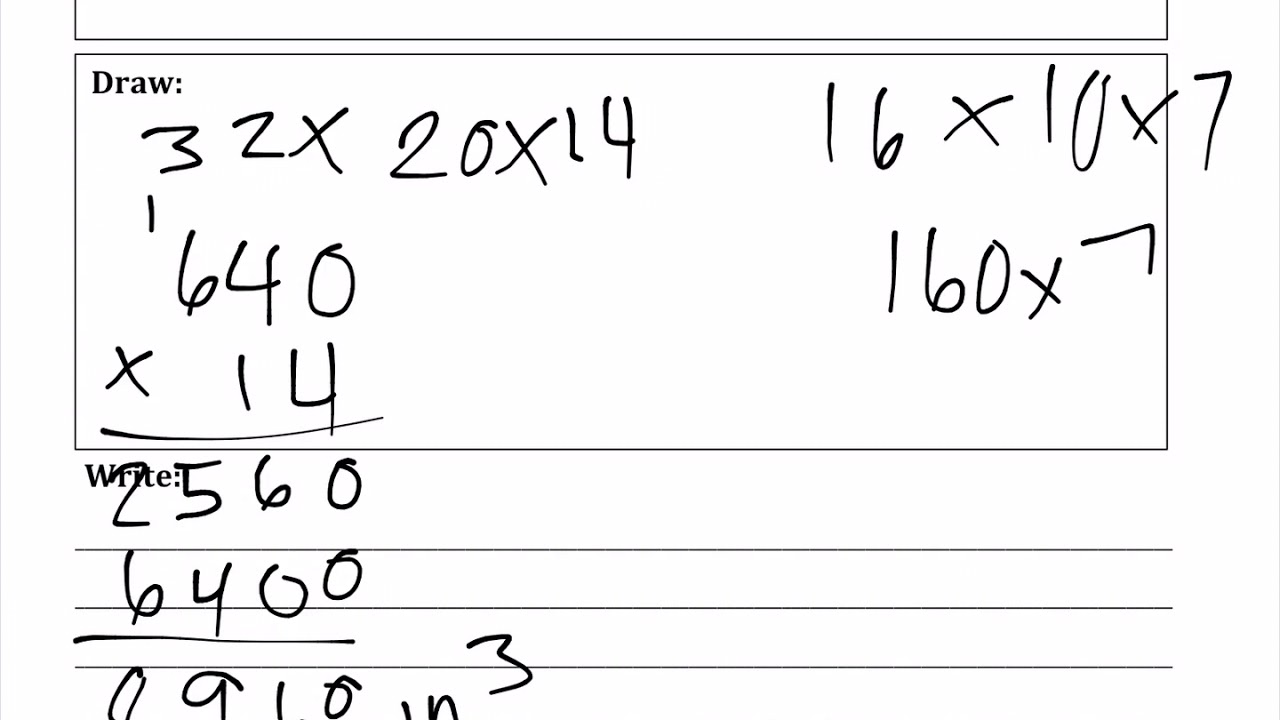 Draw:
32 x 20 x 14
16 x 10 x 7
1
640
160 x 7
x 14
Write:
2560
6400
in 3